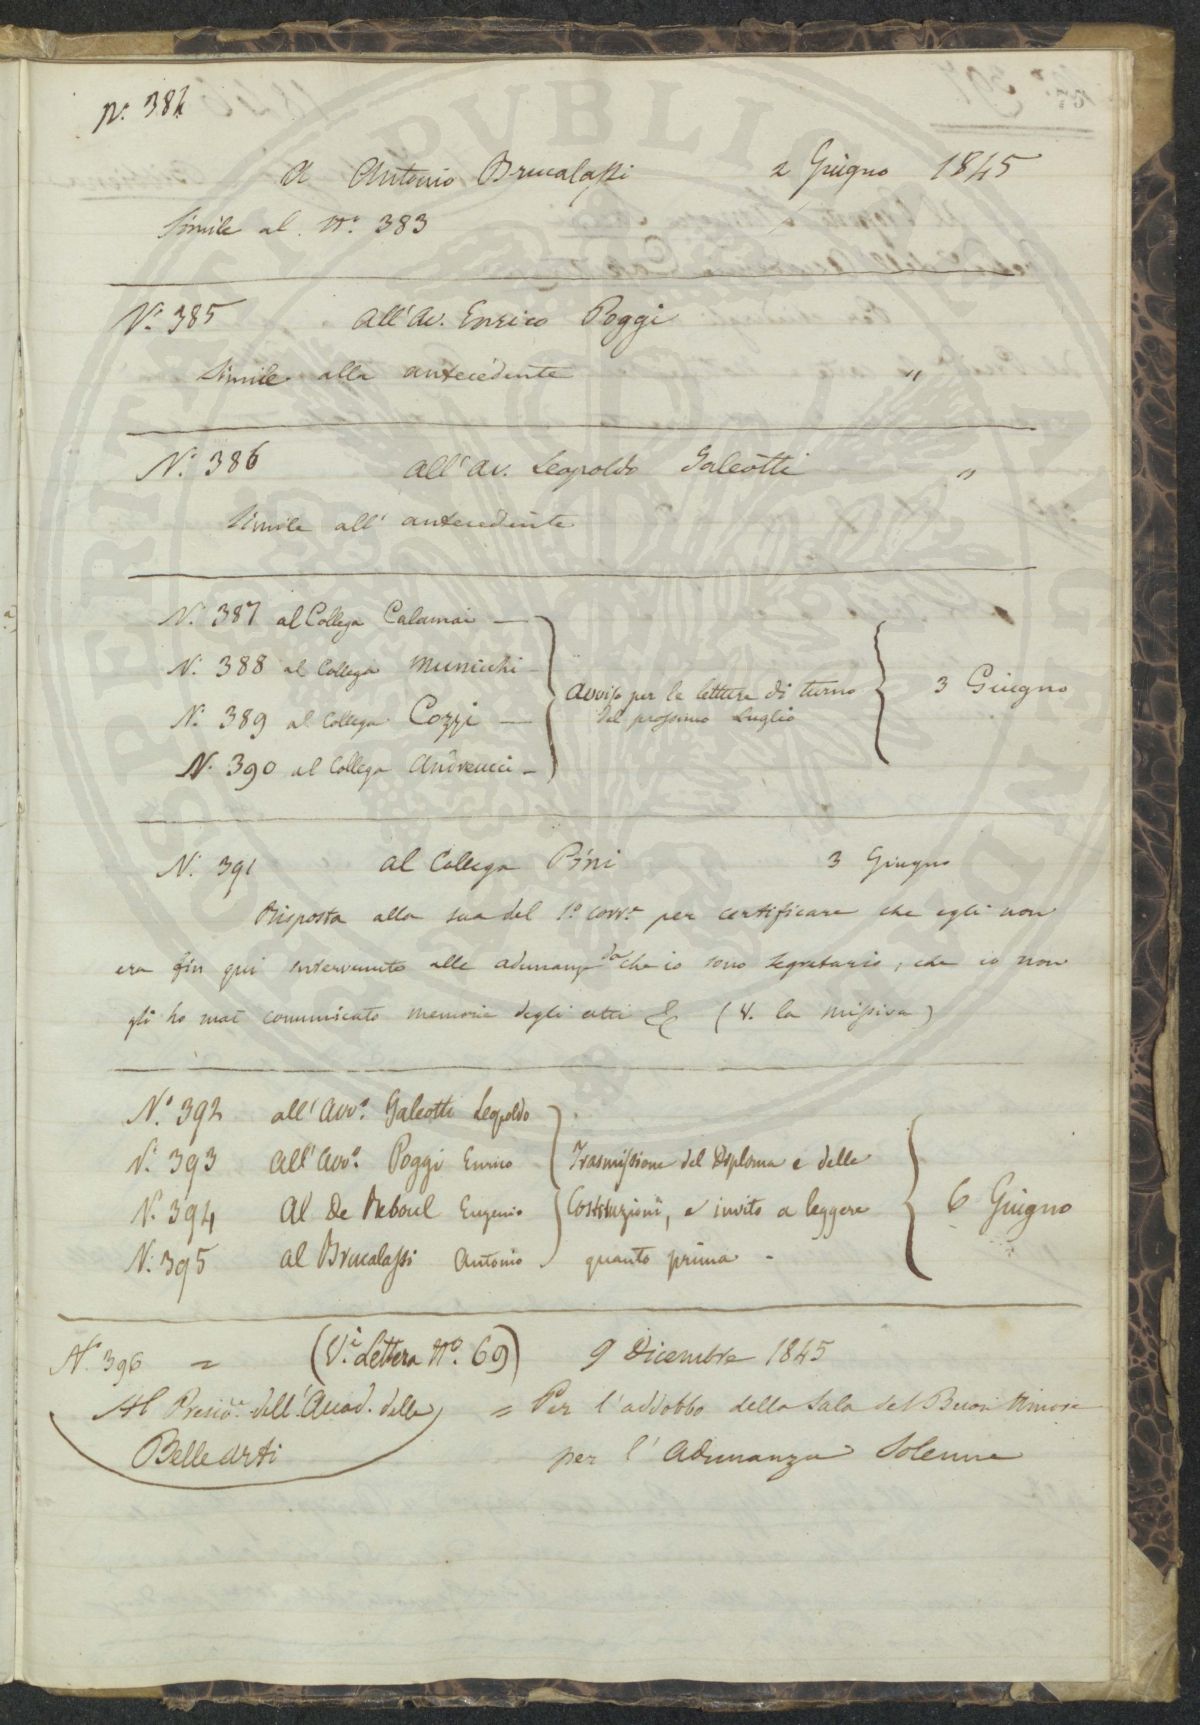 N.° 384
A Antonio Brucalassi 2 Giugno 1845
Simile al N.° 383
N.° 385 All'Av. Enrico Poggi
Simile alla antecedente "
N.° 386 All'Av. Leopoldo Galeotti "
Simile all'antecedente
N.° 387 al Collega Calamai —
N. 388 al Collega Municchi —
N. 389 al Collega Cozzi —
N. 390 al Collega Andreucci —
Avviso per le letture di turno
del prossimo Luglio
3 Giugno
N.° 391 Al Collega Pini 3 Giugno
Risposta alla sua del 1.° corr.e per certificare che egli non
era fin qui intervenuto alle adunanze da che io sono Segretario, che io non
gli ho mai comunicato memorie degli atti & (V. la missiva)
N.° 392 all'Avv.° Galeotti Leopoldo
N. 393 All'Avv.° Poggi Enrico
N.° 394 Al De Reboul Eugenio
N. 395 al Brucalassi Antonio
Trasmissione del Diploma e delle
Costituzioni, e invito a leggere
quanto prima.
6 Giugno
N.° 396 = (V.i Lettera N.° 69) 9 Dicembre 1845
Al Presid.e dell'Accad. delle = Per l'addobbo della Sala del Buon Umore
Belle Arti per l'Adunanza Solenne